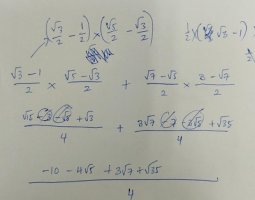 (√3/2 - 1/2) × (√5/2 - √3/2)    1/2 × ( √3 - 1)
(√3 - 1)/2 × (√5 - √3)/2 + (√7 - √5)/2 × (3 - √7)/2
(√15 - 3 - √5 + √3)/4 + (3√7 - 7 - 3√5 + √35)/4
(-10 - 4√5 + 3√7 + √35)/4